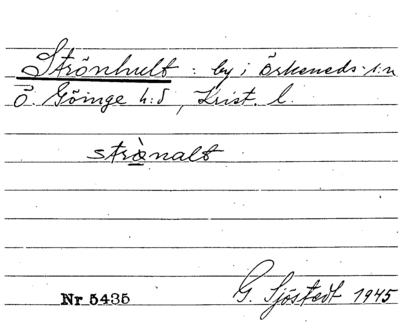 Strönhult : by i Örkeneds s:n
Ö. Göinge h:d, Krist. l.
strànalt
Nr 5435 G. Sjöstedt 1945